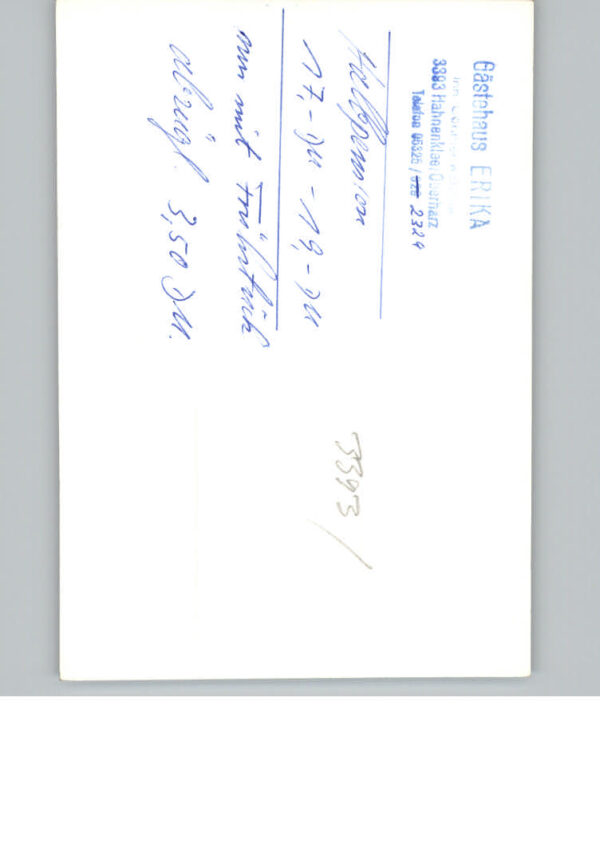 Gästehaus ERIKA
Inh.
3393 Hahnenklee Oberharz
Telefon 05326 / 2324
Halbpension
17,- DM - 19,- DM
nur mit Frühstück
abzügl. 3,50 DM.
3393 /